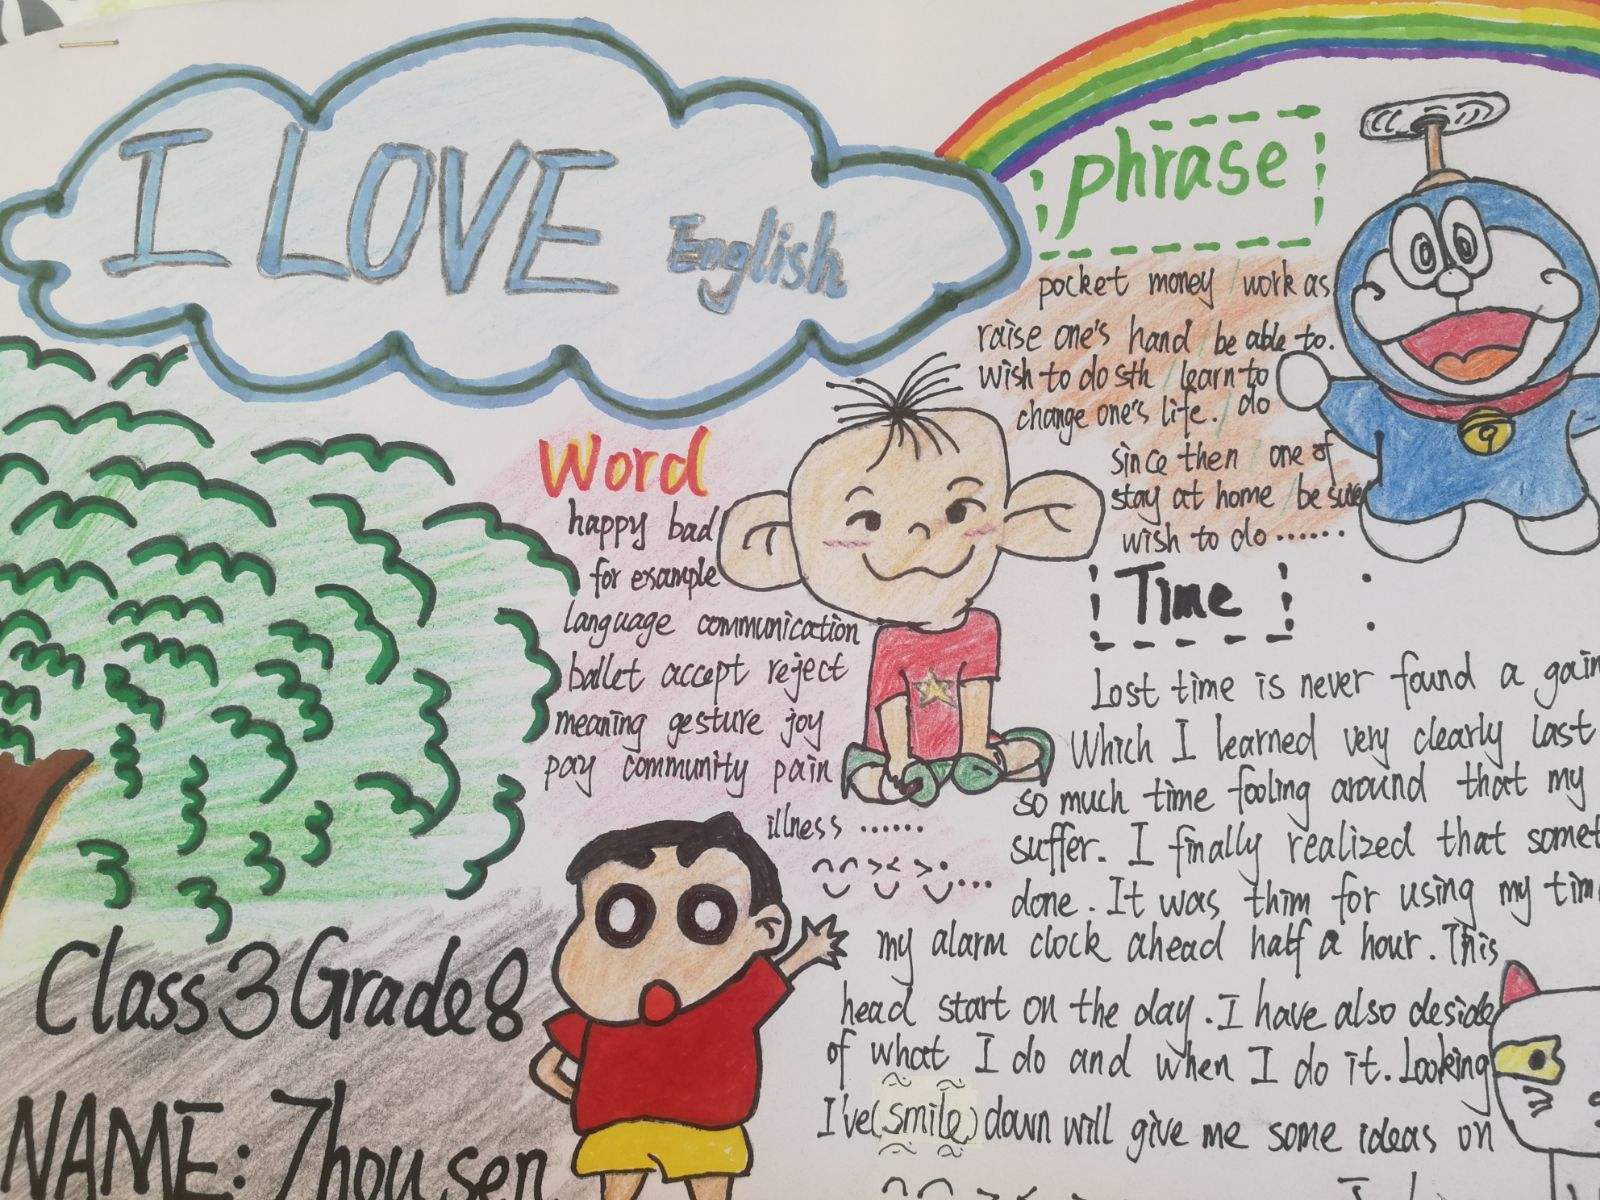 I LOVE English
phrase
pocket money / work as
raise one's hand / be able to.
wish to do sth / learn to
do
change one's life. /
since then / one of
stay at home / be sure
wish to do ......
Word
happy bad
for example
language communication
ballet accept reject
meaning gesture joy
pay community pain
illness ......
Time
Lost time is never found a gain
Which I learned very clearly last
so much time fooling around that my
suffer. I finally realized that somet
done. It was thim for using my tim
my alarm clock ahead half a hour. This
head start on the day. I have also deside
of what I do and when I do it. Looking
I've (smile) down will give me some ideas on
Class 3 Grade 8
NAME: Zhou sen